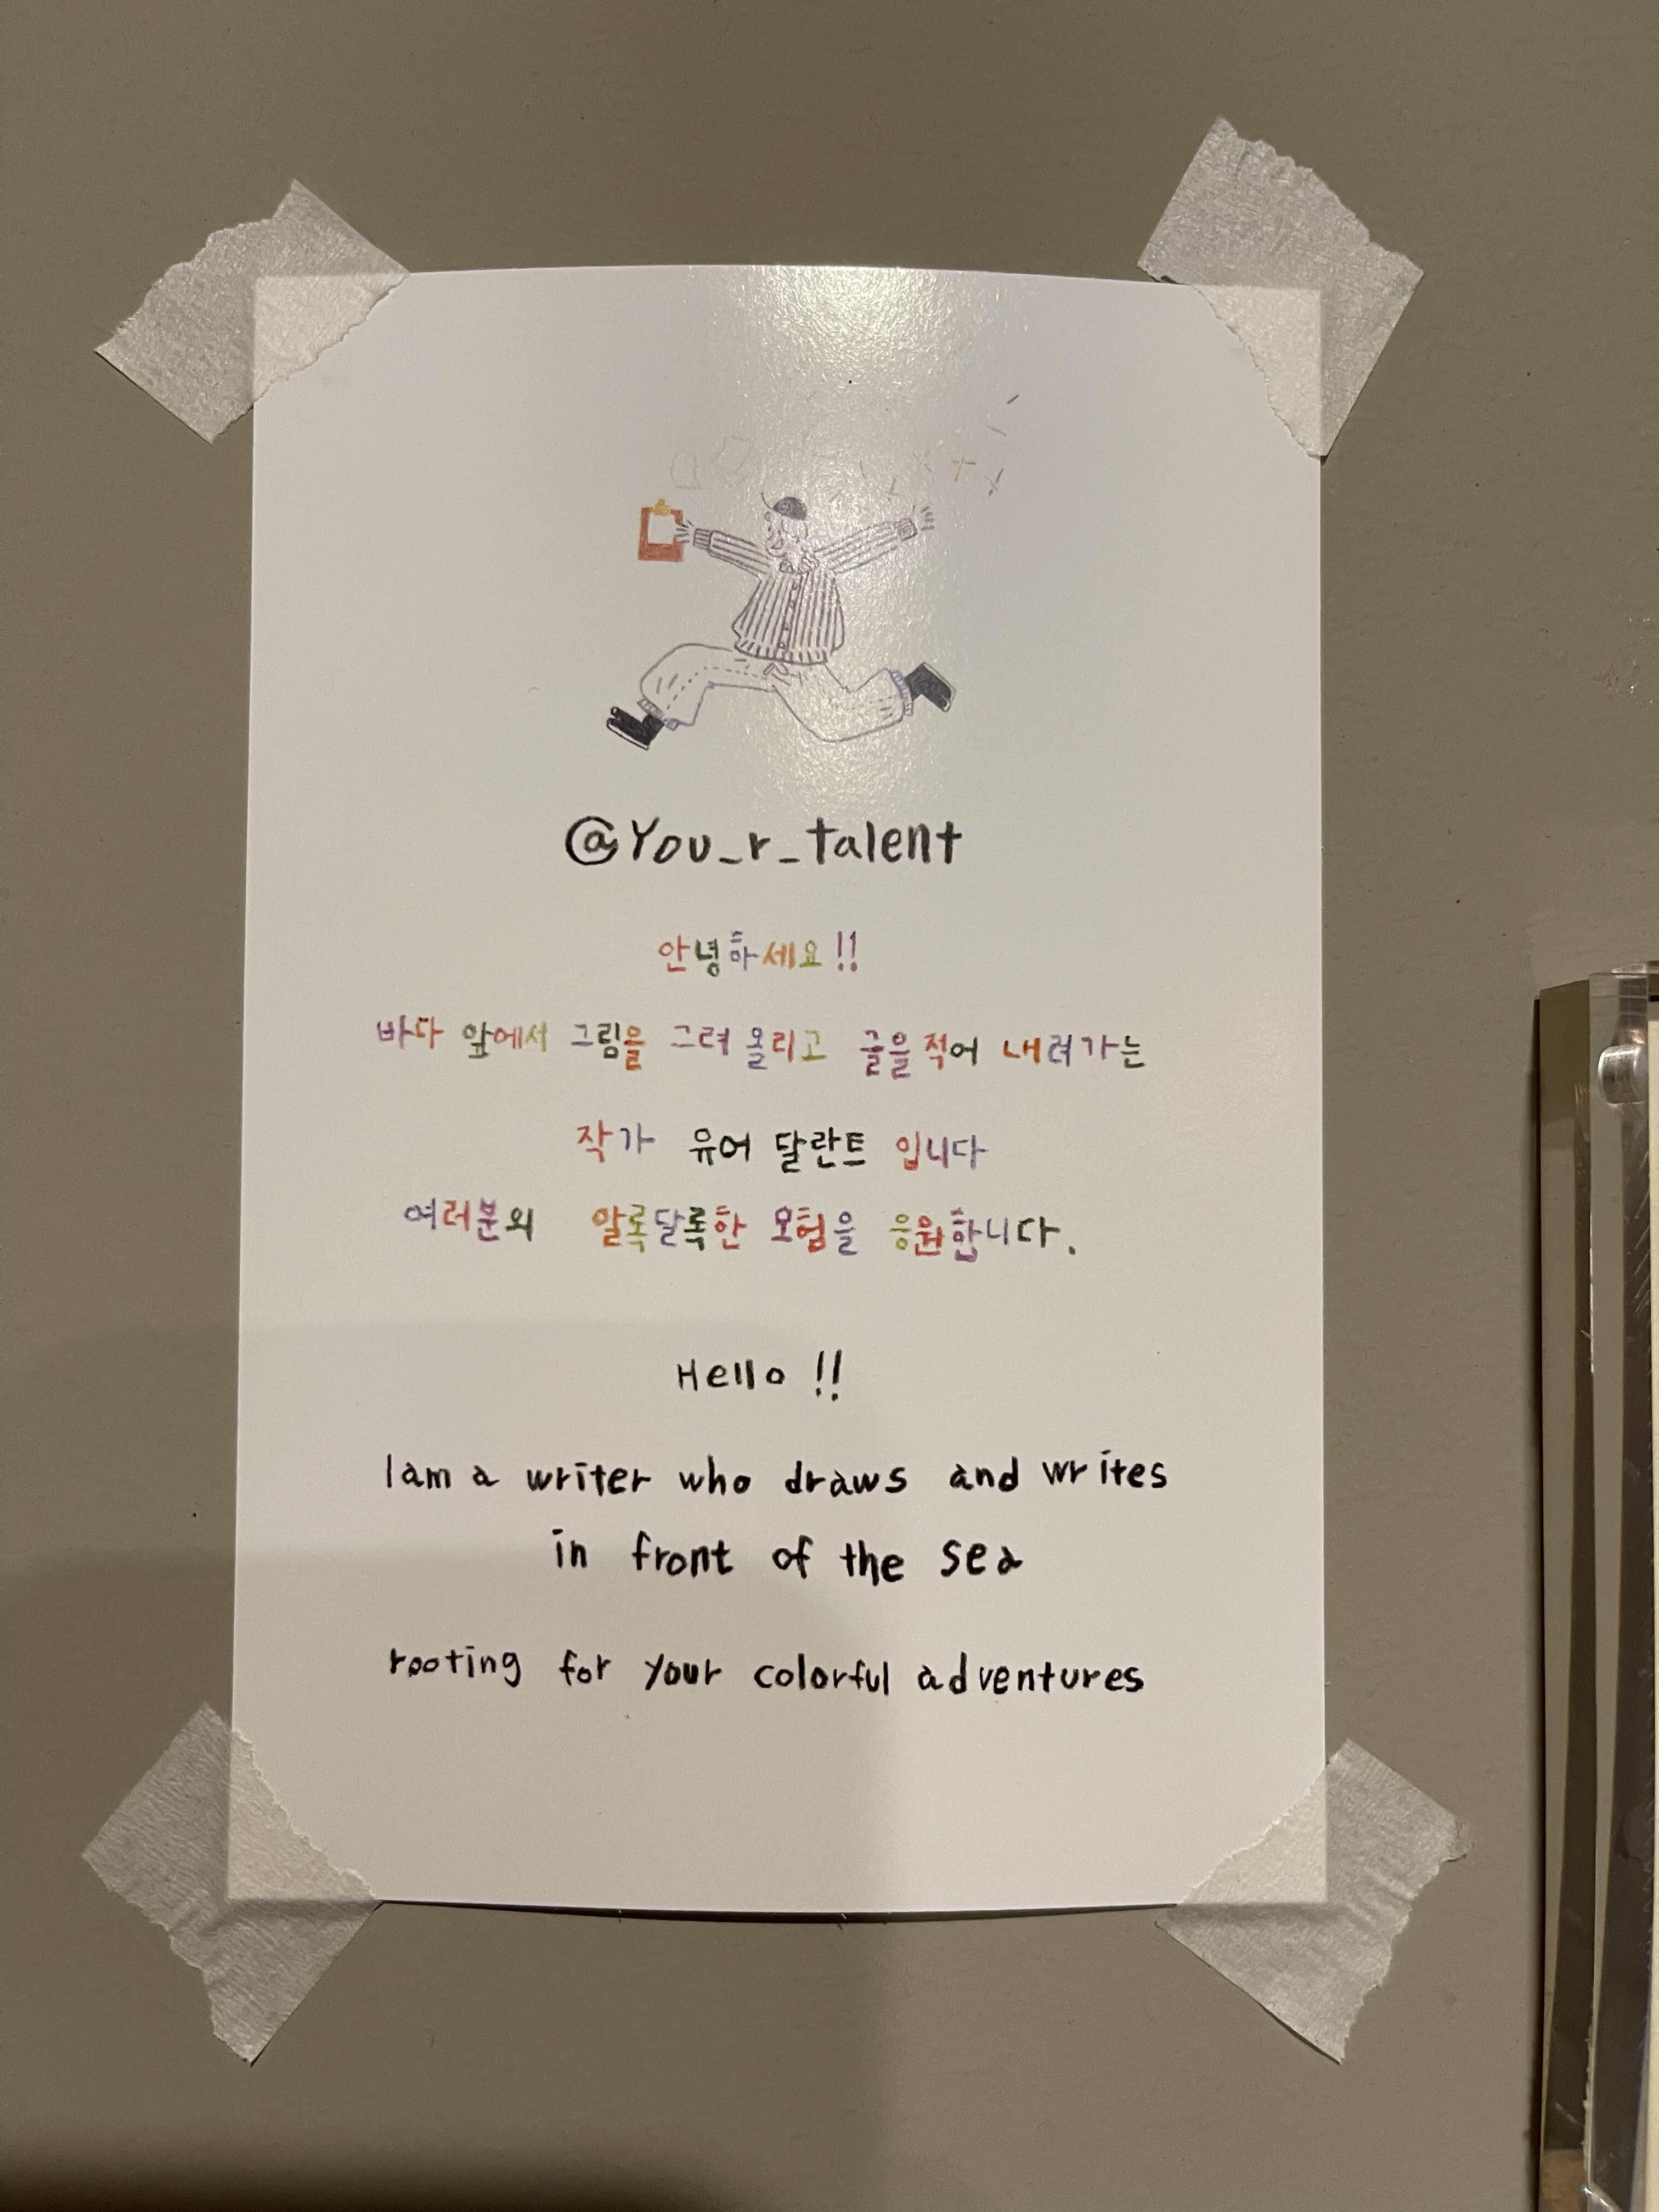 @You_r_talent
안녕하세요!!
바다 앞에서 그림을 그려 올리고 글을 적어 내려가는
작가 유어 달란트 입니다
여러분의 알록달록한 모험을 응원합니다.
Hello !!
I am a writer who draws and writes
in front of the sea
rooting for your colorful adventures